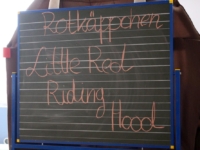 Rotkäppchen
Little Red
Riding
Hood